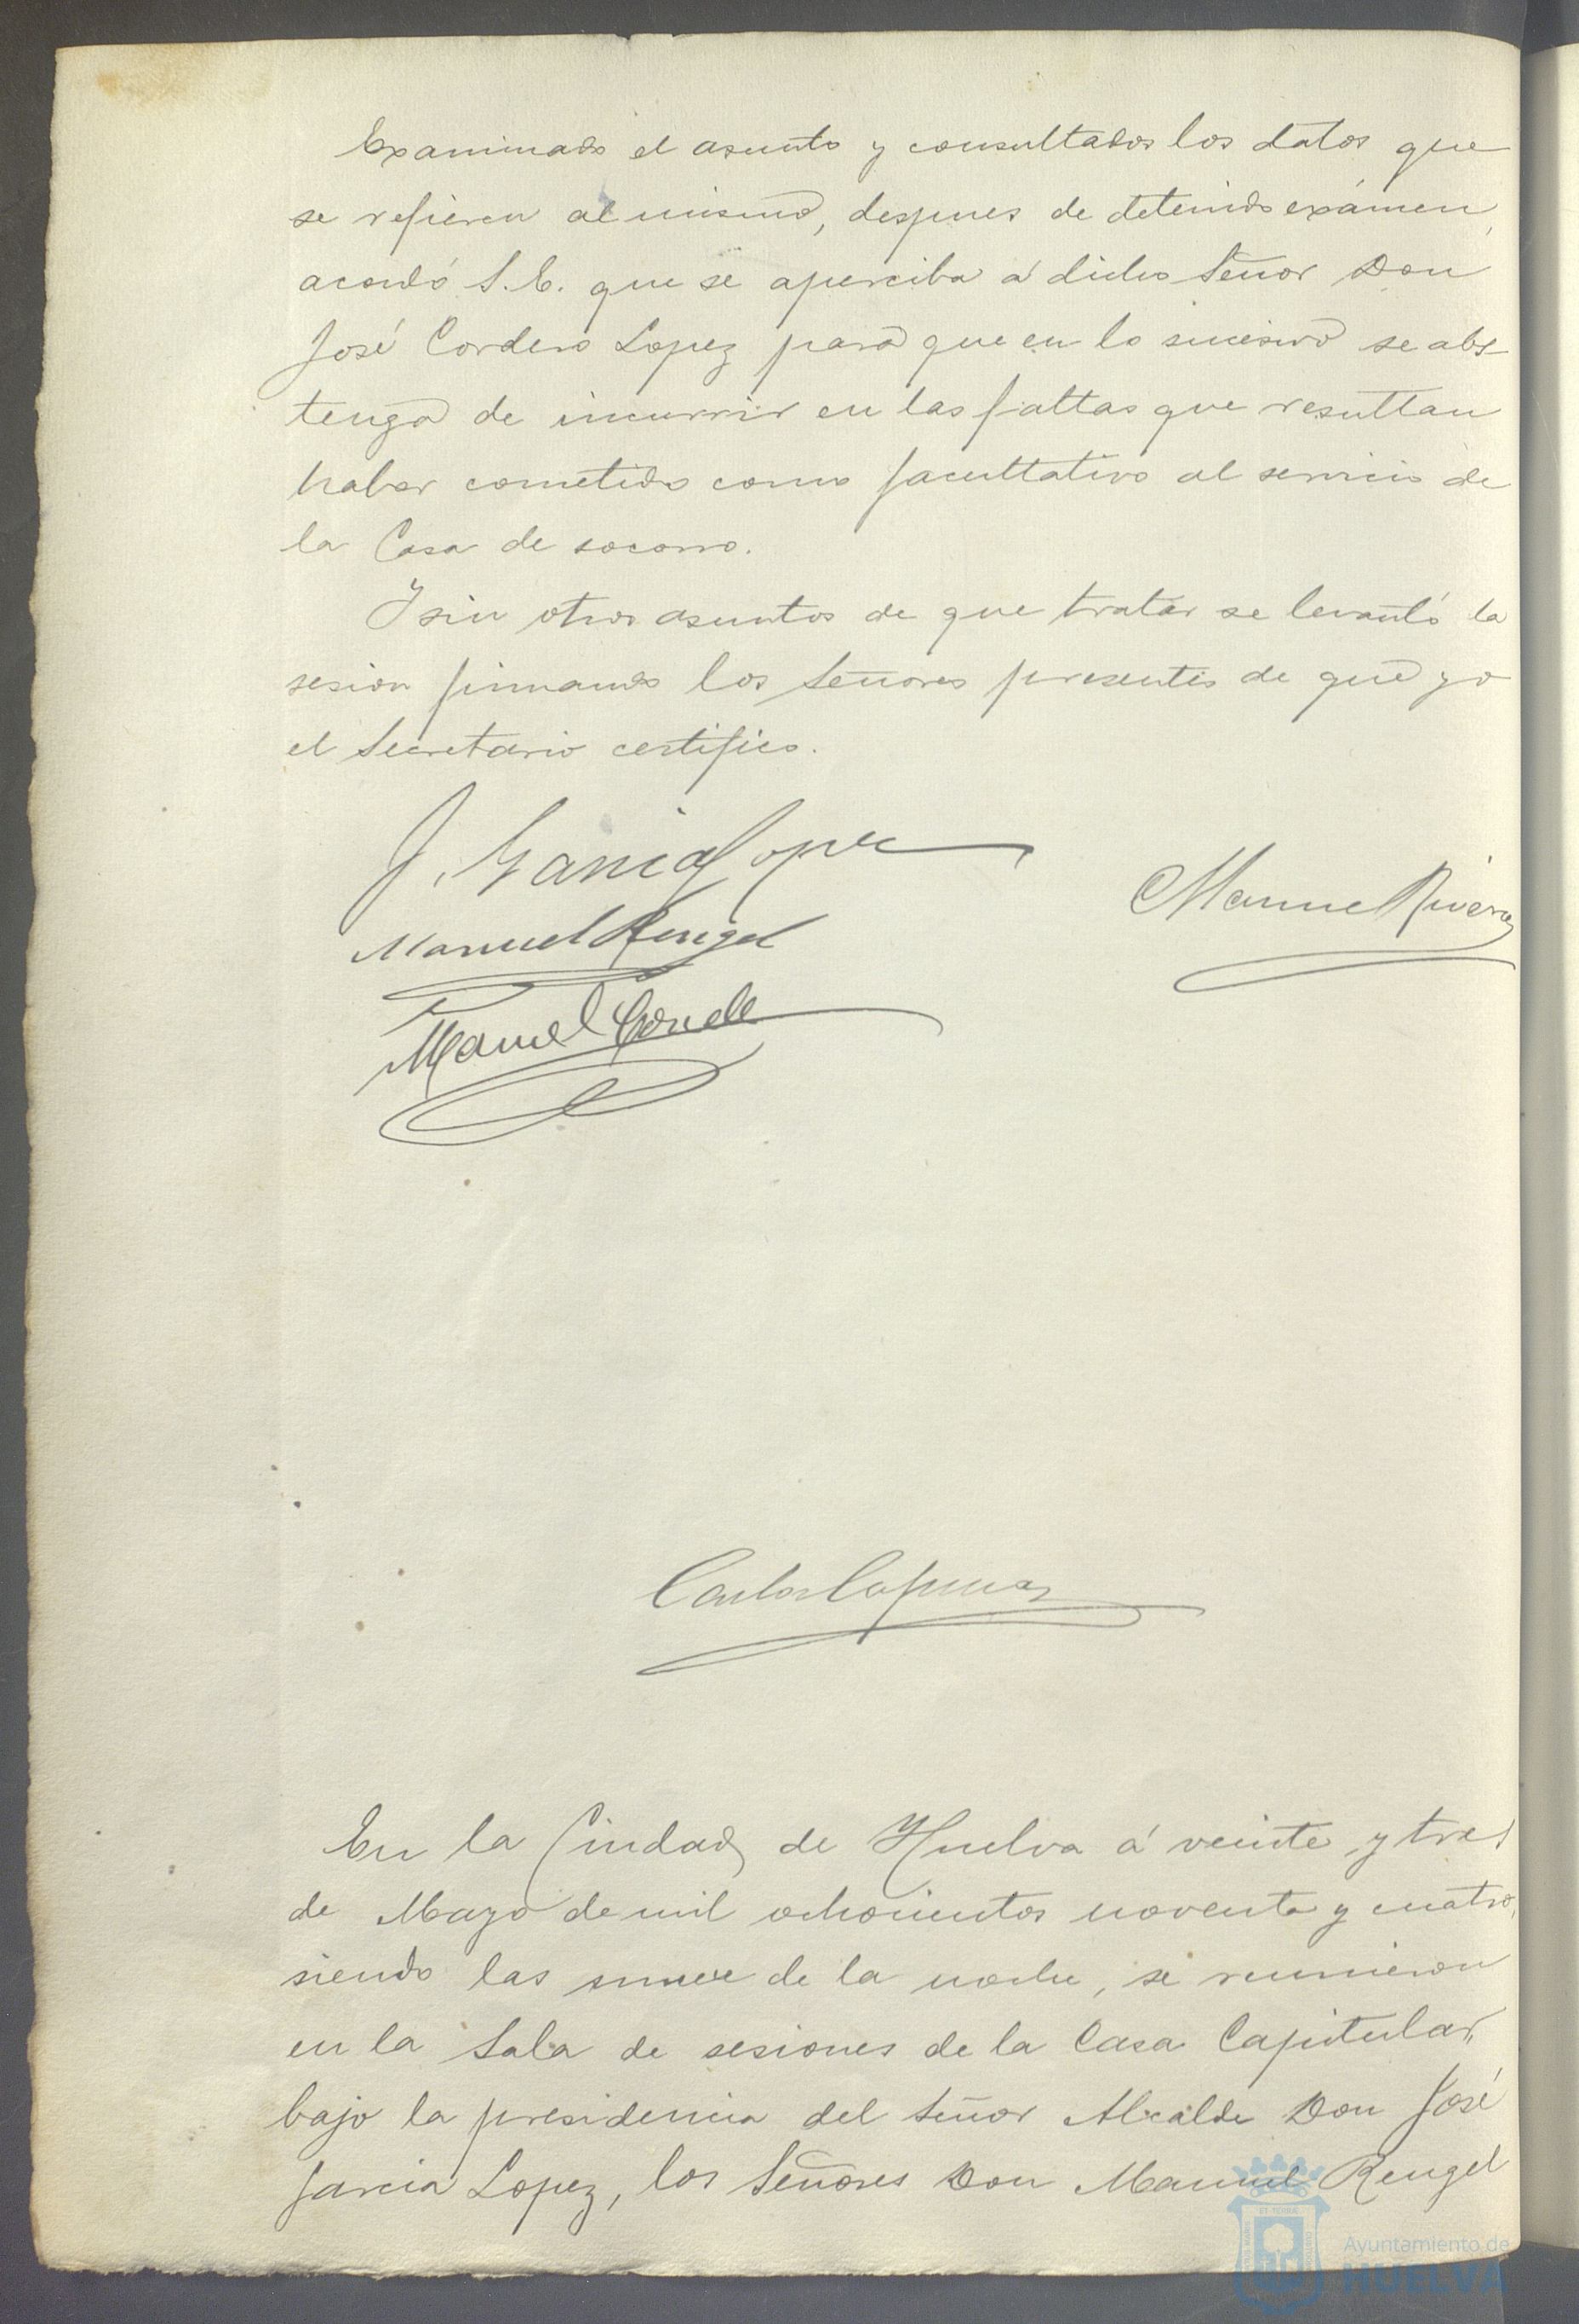 Examinado el asunto y consultados los datos que
se refieren al mismo, despues de detenido exámen,
acordó S.E. que se aperciba á dicho Señor Don
José Cordero Lopez para que en lo sucesivo se abs-
tenga de incurrir en las faltas que resultan
haber cometido como facultativo al servicio de
la Casa de socorro.
Y sin otros asuntos de que tratar se levantó la
sesion firmando los Señores presentes de que yo
el Secretario certifico.
J. Garcia Lopez
Manuel Rivera
Manuel Rengel
Manuel Conde
Carlos
En la Ciudad de Huelva á veinte y tres
de Mayo de mil ochocientos noventa y cuatro,
siendo las nueve de la noche, se reunieron
en la Sala de sesiones de la Casa Capitular,
bajo la presidencia del Señor Alcalde Don José
Garcia Lopez, los Señores Don Manuel Rengel
Ayuntamiento de
HUELVA